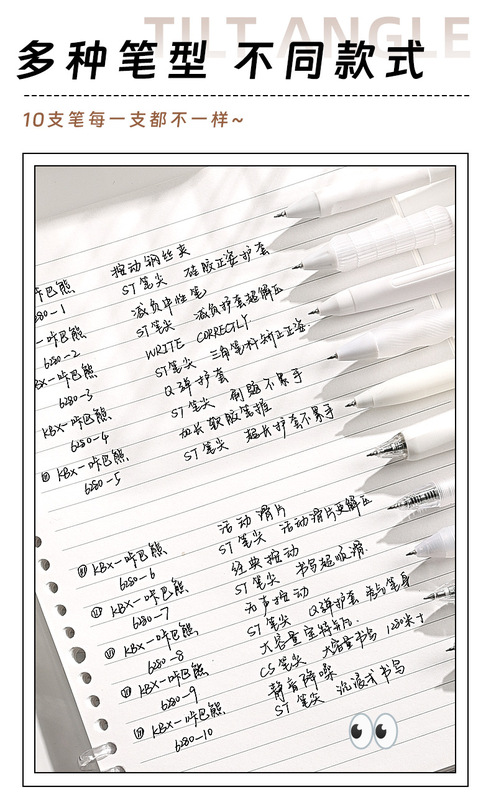 TILT ANGLE
多种笔型 不同款式
10支笔每一支都不一样~
按动钢丝夹
咔巴熊 ST笔尖 硅胶正姿护套
6280-1 减负中性笔
-咔巴熊 ST笔尖 减负护套超解压
6280-2 WRITE CORRECTLY
KBX-咔巴熊 ST笔尖 三角笔杆矫正正姿
6280-3 Q弹护套
KBX-咔巴熊 ST笔尖 刷题不累手
6280-4 加长软胶笔握
KBX-咔巴熊 ST笔尖 超长护套不累手
6280-5
活动滑片
KBX-咔巴熊 ST笔尖 活动滑片更解压
6280-6 经典按动
KBX-咔巴熊 ST笔尖 书写超顺滑
6280-7 无声按动
KBX-咔巴熊 ST笔尖 Q弹护套 笔身
6280-8 大容量
KBX-咔巴熊 CS笔尖 大容量书写 1280米
6280-9 静音降噪
KBX-咔巴熊 ST笔尖 沉浸式书写
6280-10